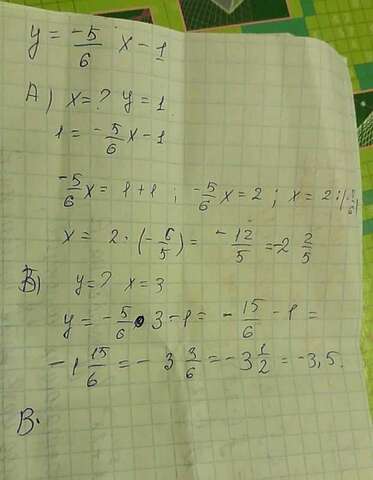 y = -5/6 x - 1
A) x = ? y = 1
1 = -5/6 x - 1
-5/6 x = 1 + 1 ; -5/6 x = 2 ; x = 2 : (-5/6)
x = 2 · (-6/5) = -12/5 = -2 2/5
B) y = ? x = 3
y = -5/6 · 3 - 1 = -15/6 - 1 =
-1 15/6 = -3 3/6 = -3 1/2 = -3,5.
B.